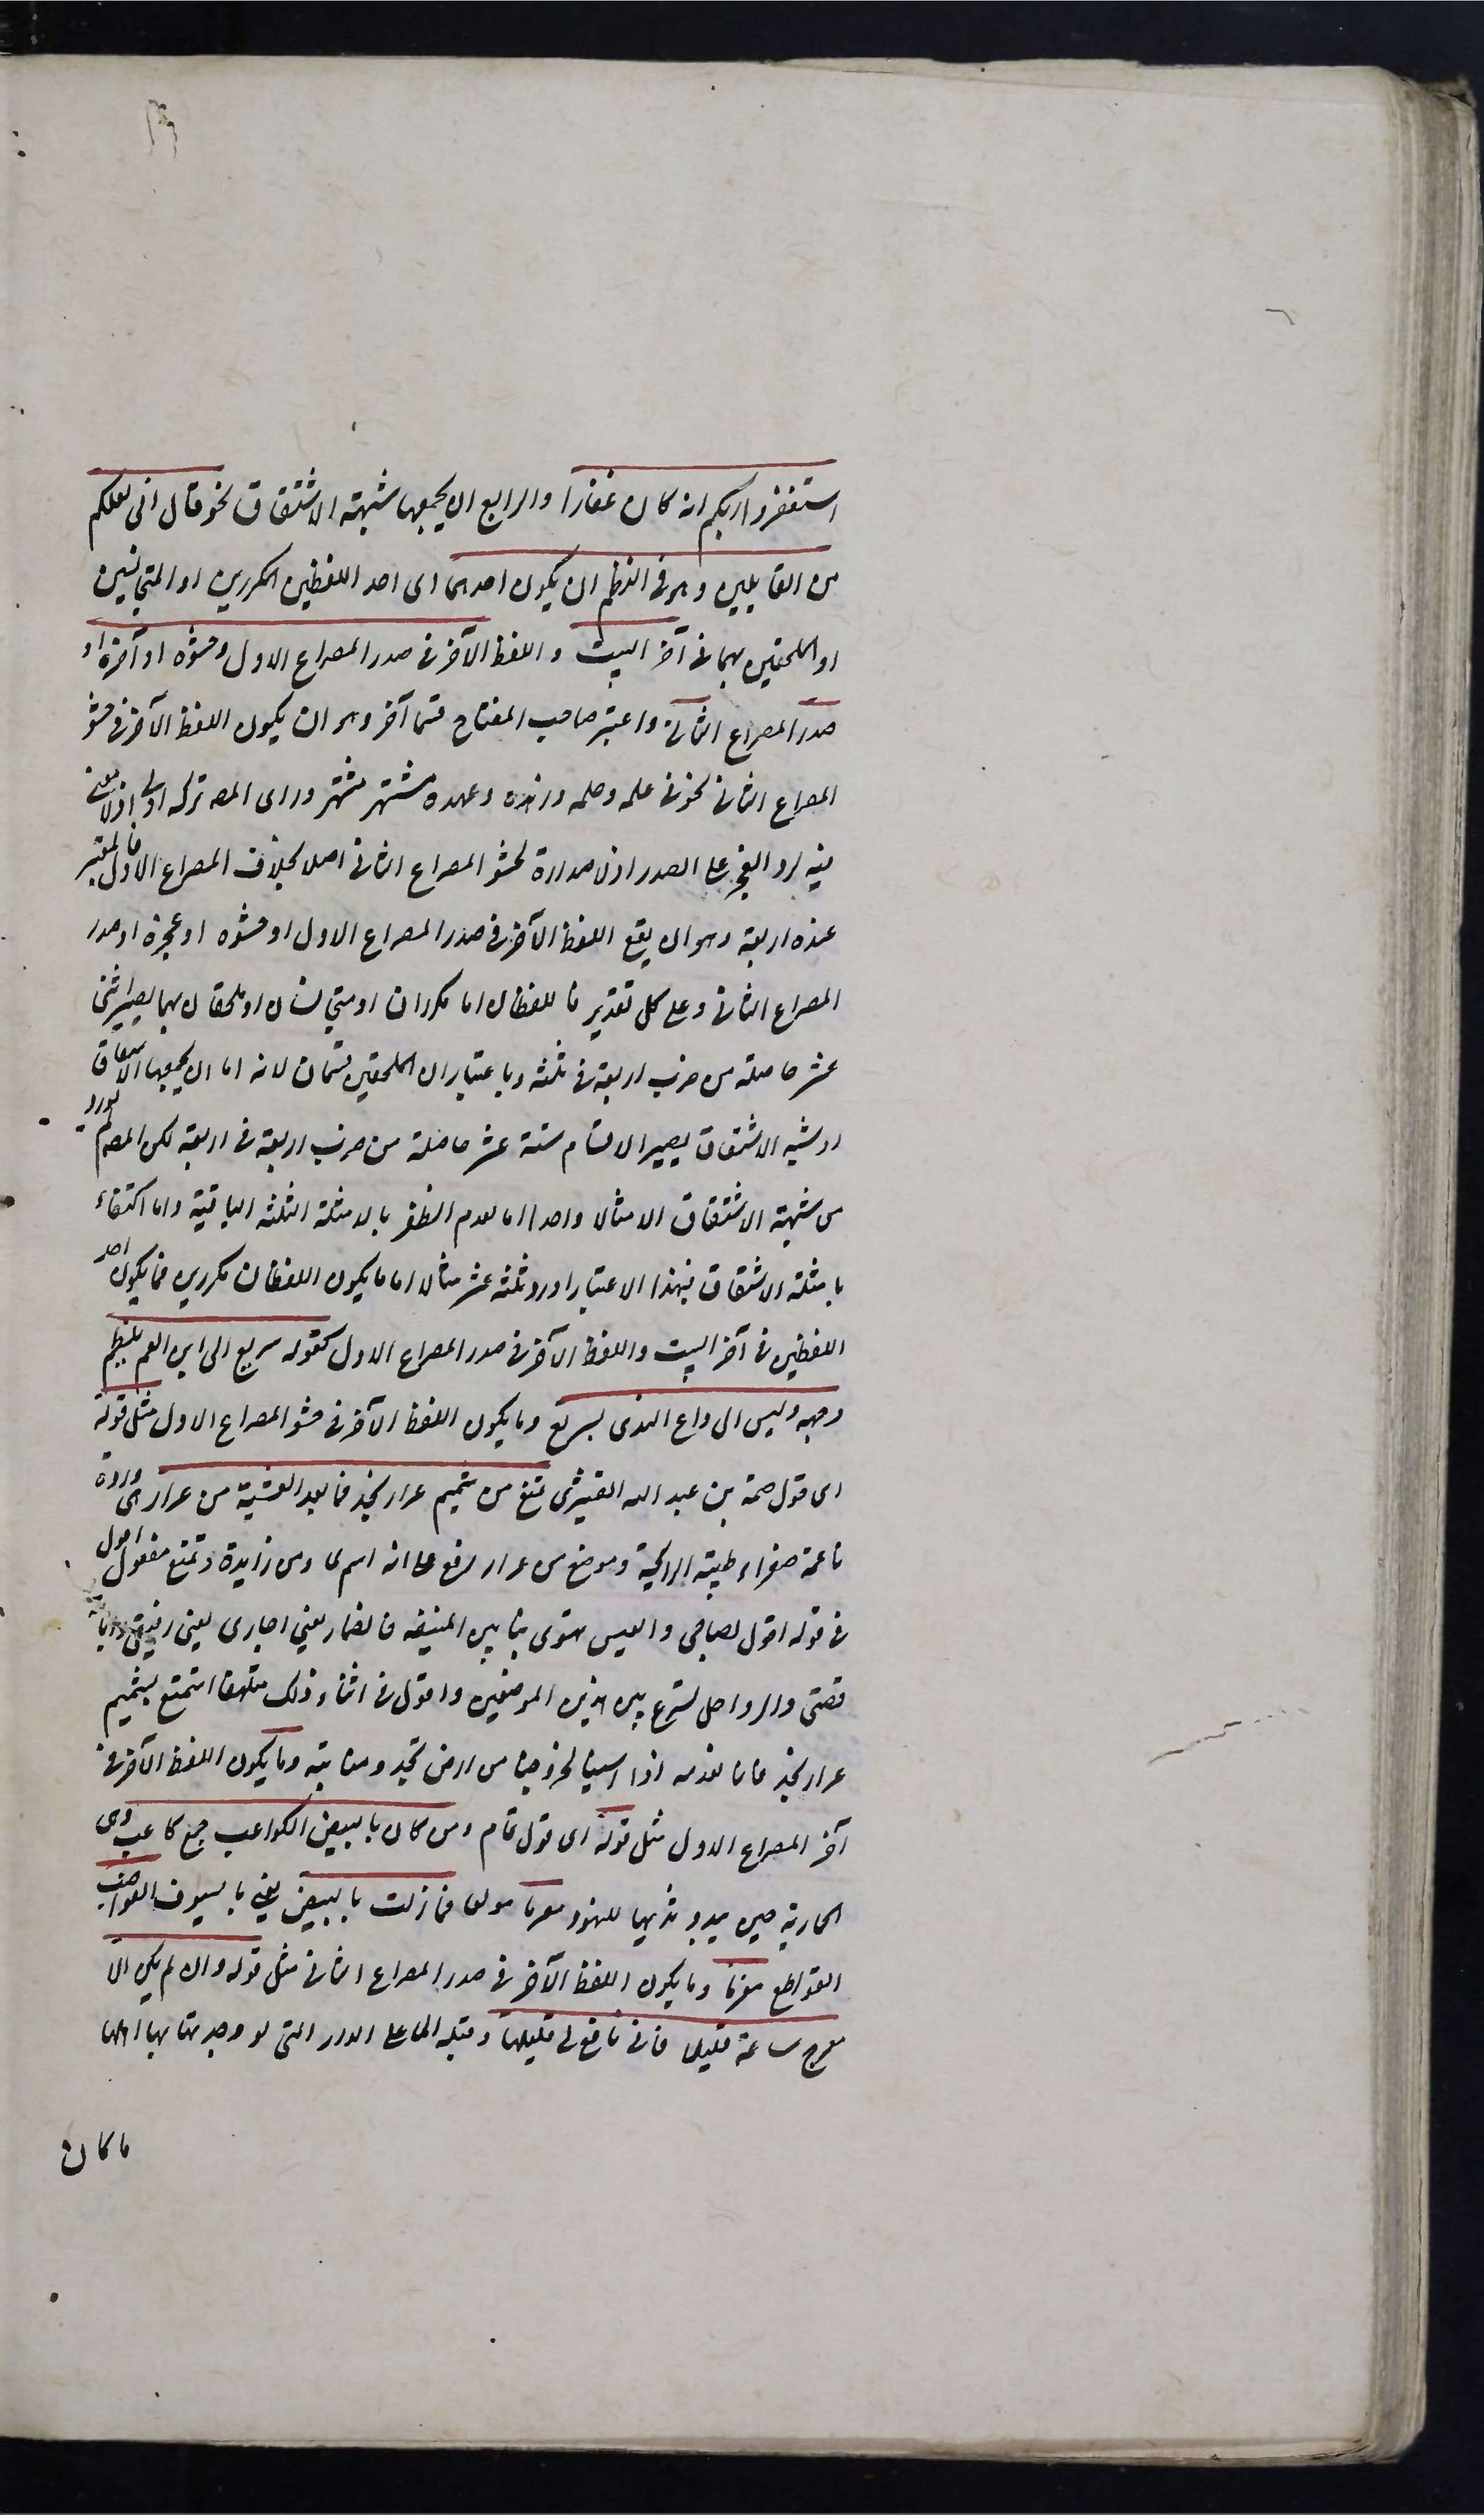 استغفروا ربكم انه كان غفارا والرابع ان يجمعهما شبهة الاشتقاق نحو قال انى لعملكم
من القالين وهو فى النظم ان يكون احدهما اى احد اللفظين المكررين او المتجانسين
او الملحقين بهما فى آخر البيت و اللفظ الآخر فى صدر المصراع الاول وحشوه او آخره او
صدر المصراع الثانى واعتبر صاحب المفتاح قسما آخر وهو ان يكون اللفظ الآخر فى حشو
المصراع الثانى نحو فى علمه وحلمه وزهده وعهده مشتهر مشتهر ورأى المصـ تركه اولى اذ لا معنى
فيه لرد العجز على الصدر اذ لا صدارة لحشو المصراع الثانى اصلا بخلاف المصراع الاول فالمعتبر
عنده اربعة وهو ان يقع اللفظ الآخر فى صدر المصراع الاول او حشوه او عجزه او صدر
المصراع الثانى وعلى كل تقدير فاللفظان اما مكرران او متجانسان او ملحقان بهما يصير اثنى
عشر حاصلة من ضرب اربعة فى ثلثة وباعتبار ان الملحقين قسمان لانه اما ان يجمعهما الاشتقاق
او شبه الاشتقاق يصير الاقسام ستة عشر حاصلة من ضرب اربعة فى اربعة لكن المصـ لم يورد
من شبهة الاشتقاق الا مثالا واحدا اما لعدم الظفر بالامثلة الثلثة الباقية واما اكتفاء
بامثلة الاشتقاق فبهذا الاعتبار اورد ثلثة عشر مثالا اما ما يكون اللفظان مكررين فما يكون احد
اللفظين فى آخر البيت واللفظ الآخر فى صدر المصراع الاول كقوله سريع الى ابن العم يلطم
وجهه وليس الى داع الندى بسريع وما يكون اللفظ الآخر فى حشو المصراع الاول مثل قوله
اى قول صمة بن عبد الله القشيرى تمتع من شميم عرار نجد فما بعد العشية من عرار هى وردة
ناعمة صفراء طيبة الرائحة وموضع من عرار رفع على انه اسم ما ومن زايدة وتمتع مفعول اقول
فى قوله اقول لصاحبى والعيس تهوى بنا بين المنيفة فالضمار يعنى اجارى يعنى رفيقى
قصتى والرواحل تسرع بين هذين الموضعين واقول فى اثناء ذلك متلهفا استمتع بشميم
عرار نجد فانا نعدمه اذا امسينا لخروجنا من ارض نجد ومنابته وما يكون اللفظ الآخر فى
آخر المصراع الاول مثل قوله اى قول تمام ومن كان بالبيض الكواعب جمع كاعب وهى
الجارية حين يبدو ثديها للنهود مغرما مولعا فما زلت بالبيض يعنى بالسيوف القواضب
القواطع مغرما وما يكون اللفظ الآخر فى صدر المصراع الثانى مثل قوله وان لم يكن الا
معرج ساعة قليلا فانى نافع لى قليلها وقبله الما على الدار التى لو وجدتها بها اهلها
ما كان